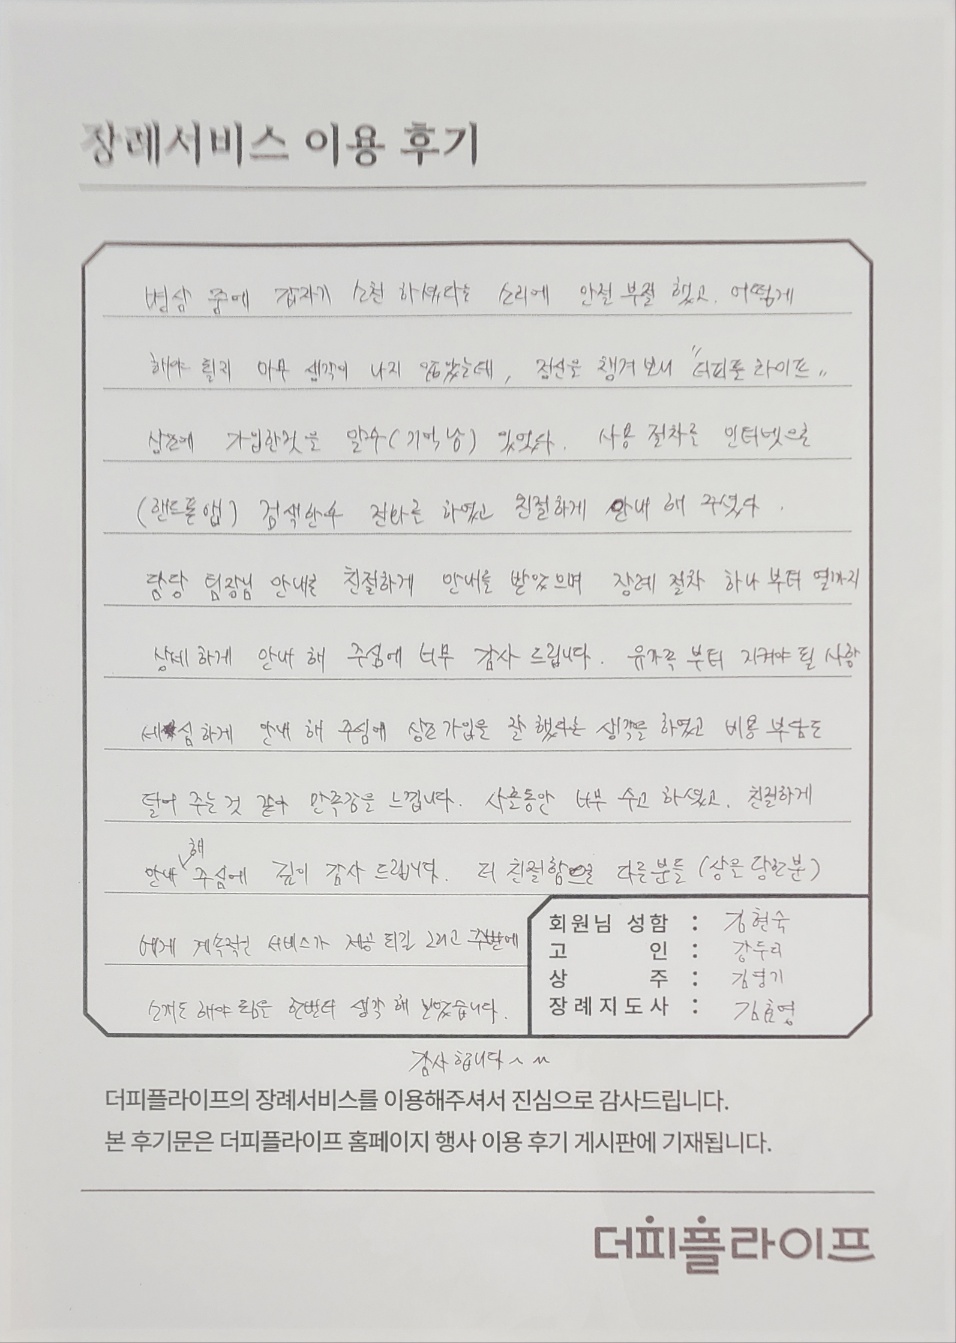 장례서비스 이용 후기
병상 중에 갑자기 소천 하셨다는 소리에 안절 부절 했고, 어떻게
해야 될지 아무 생각이 나지 않았는데, 정신을 챙겨 보니 "더피플 라이프"
상조에 가입한것을 알수(기억남) 있었다. 사용 절차를 인터넷으로
(핸드폰앱) 검색한후 전화를 하였고 친절하게 안내 해 주셨다.
담당 팀장님 안내를 친절하게 안내를 받았으며 장례 절차 하나 부터 열까지
상세 하게 안내 해 주심에 너무 감사 드립니다. 유가족 부터 지켜야 될 사항
세심하게 안내 해 주심에 상조가입을 잘 했다는 생각을 하였고 비용 부담도
덜어 주는것 같아 만족감을 느낍니다. 사흘동안 너무 수고 하셨고, 친절하게
안내 해 주심에 깊이 감사 드립니다. 더 친절함을 다른분들 (상을 당한분)
에게 계속적인 서비스가 제공 되길 그리고 주변에
소개도 해야 됨을 한번더 생각 해 보았습니다.
감사 합니다 ^^
회원님 성함 : 김현숙
고 인 : 강두리
상 주 : 김영기
장례지도사 : 김효영
더피플라이프의 장례서비스를 이용해주셔서 진심으로 감사드립니다.
본 후기문은 더피플라이프 홈페이지 행사 이용 후기 게시판에 기재됩니다.
더피플라이프